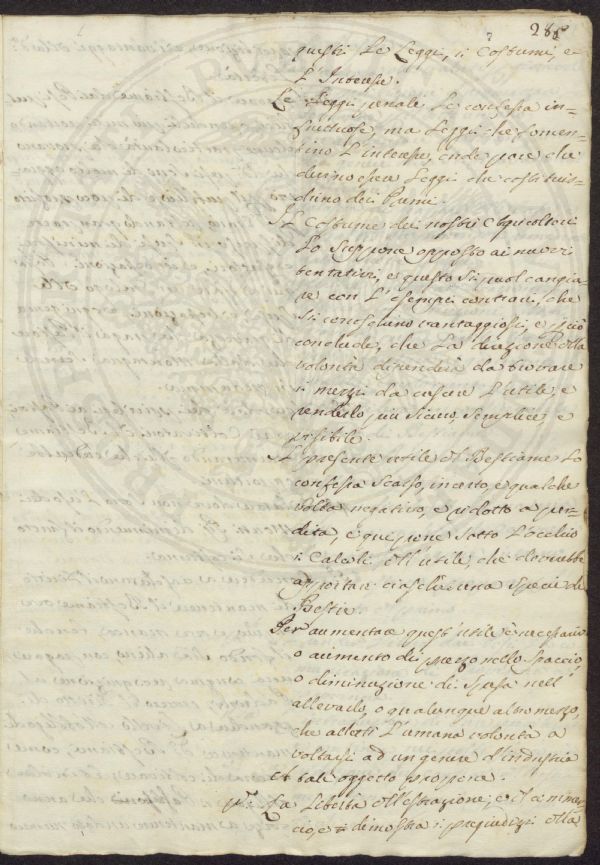 285
questi Le Leggi, i Costumi, e
L'Interesse.
Le Leggi penali Le confessa in=
fruttuose, ma Leggi che fomen=
tino L'interesse, onde pare che
devino esser Leggi che costituis=
chino dei Premi.
Il Costume dei nostri Agricoltori
Lo suppone opposto ai nuovi
tentativi, e questo si puol cangia
re con L'esempi contrari, che
si conoschino vantaggiosi, e può
conclude, che La direzione della
volontà dipenderà da trovare
i mezzi da cavare L'utile, e
renderlo più sicuro, semplice, e
visibile.
Il presente utile del Bestiame Lo
confessa scarso, incerto, e qualche
volta negativo, e ridotto a per=
dita, e què pone sotto L'occhio
i Calcoli dell'utile, che dovrebbe
apportare ciascheduna specie di
Bestie.
Per aumentare quest'utile è necessario
o aumento di prezzo nello spaccio,
o diminuzione di spesa nell'
allevarlo, o qualunque altro mezzo,
che alletti L'umana volontà a
voltarsi ad un genere d'industria
A tale oggetto propone.
p.° La Libertà dell'estrazione, e del commer=
cio, e dimostra i pregiudizi della